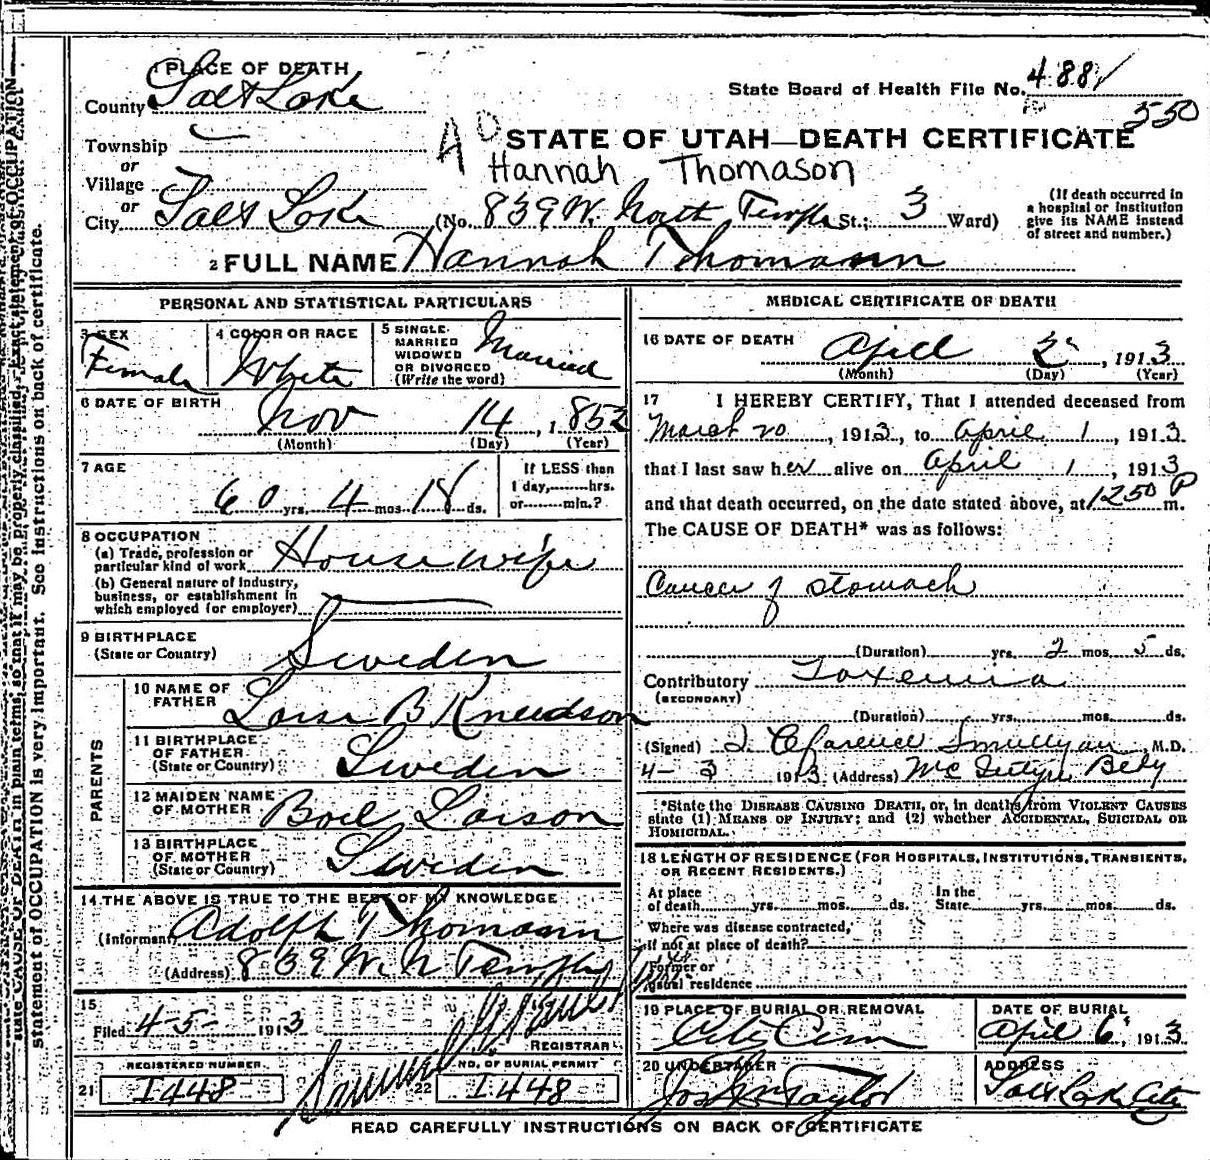 1 PLACE OF DEATH
County Salt Lake
State Board of Health File No. 488
550
Township
or
Village
or
City Salt Lake
STATE OF UTAH—DEATH CERTIFICATE
Hannah Thomason
(No. 839 W. North Temple St.; 3 Ward)
(If death occurred in a hospital or institution give its NAME instead of street and number.)
2 FULL NAME Hannah Thomann
PERSONAL AND STATISTICAL PARTICULARS
3 SEX
Female
4 COLOR OR RACE
White
5 SINGLE, MARRIED WIDOWED OR DIVORCED (Write the word)
Married
6 DATE OF BIRTH
Nov 14, 1852
(Month) (Day) (Year)
7 AGE
60 yrs. 4 mos. 18 ds.
If LESS than 1 day, hrs. or min.?
8 OCCUPATION
(a) Trade, profession or particular kind of work Housewife
(b) General nature of industry, business, or establishment in which employed (or employer)
9 BIRTHPLACE
(State or Country) Sweden
PARENTS
10 NAME OF FATHER B Knudson
11 BIRTHPLACE OF FATHER (State or Country) Sweden
12 MAIDEN NAME OF MOTHER Boel Larson
13 BIRTHPLACE OF MOTHER (State or Country) Sweden
14 THE ABOVE IS TRUE TO THE BEST OF MY KNOWLEDGE
(Informant) Adolph Thomann
(Address) 839 W. N Temple
15
Filed 4-5- 1913
REGISTRAR.
REGISTERED NUMBER
21 1448
NO. OF BURIAL PERMIT
22 1448
MEDICAL CERTIFICATE OF DEATH
16 DATE OF DEATH
April 2, 1913
(Month) (Day) (Year)
17 I HEREBY CERTIFY, That I attended deceased from
March 20, 1913, to April 1, 1913
that I last saw her alive on April 1, 1913
and that death occurred, on the date stated above, at 1250 P m.
The CAUSE OF DEATH* was as follows:
Cancer of stomach
(Duration) yrs. 2 mos. 5 ds.
Contributory Toxemia
(SECONDARY)
(Duration) yrs. mos. ds.
(Signed) J. Clarence , M.D.
4-3 1913 (Address) McIntyre Bldg
*State the DISEASE CAUSING DEATH, or, in deaths from VIOLENT CAUSES state (1) MEANS OF INJURY; and (2) whether ACCIDENTAL, SUICIDAL OR HOMICIDAL.
18 LENGTH OF RESIDENCE (FOR HOSPITALS, INSTITUTIONS, TRANSIENTS, OR RECENT RESIDENTS.)
At place of death yrs. mos. ds. In the State yrs. mos. ds.
Where was disease contracted, if not at place of death?
Former or usual residence
19 PLACE OF BURIAL OR REMOVAL
City Cem
DATE OF BURIAL
April 6, 1913
20 UNDERTAKER
Jos Wm Taylor
ADDRESS
Salt Lake City
READ CAREFULLY INSTRUCTIONS ON BACK OF CERTIFICATE
state CAUSE OF DEATH in plain terms so that it may be properly classified. Exact statement of OCCUPATION
statement of OCCUPATION is very important. See instructions on back of certificate.